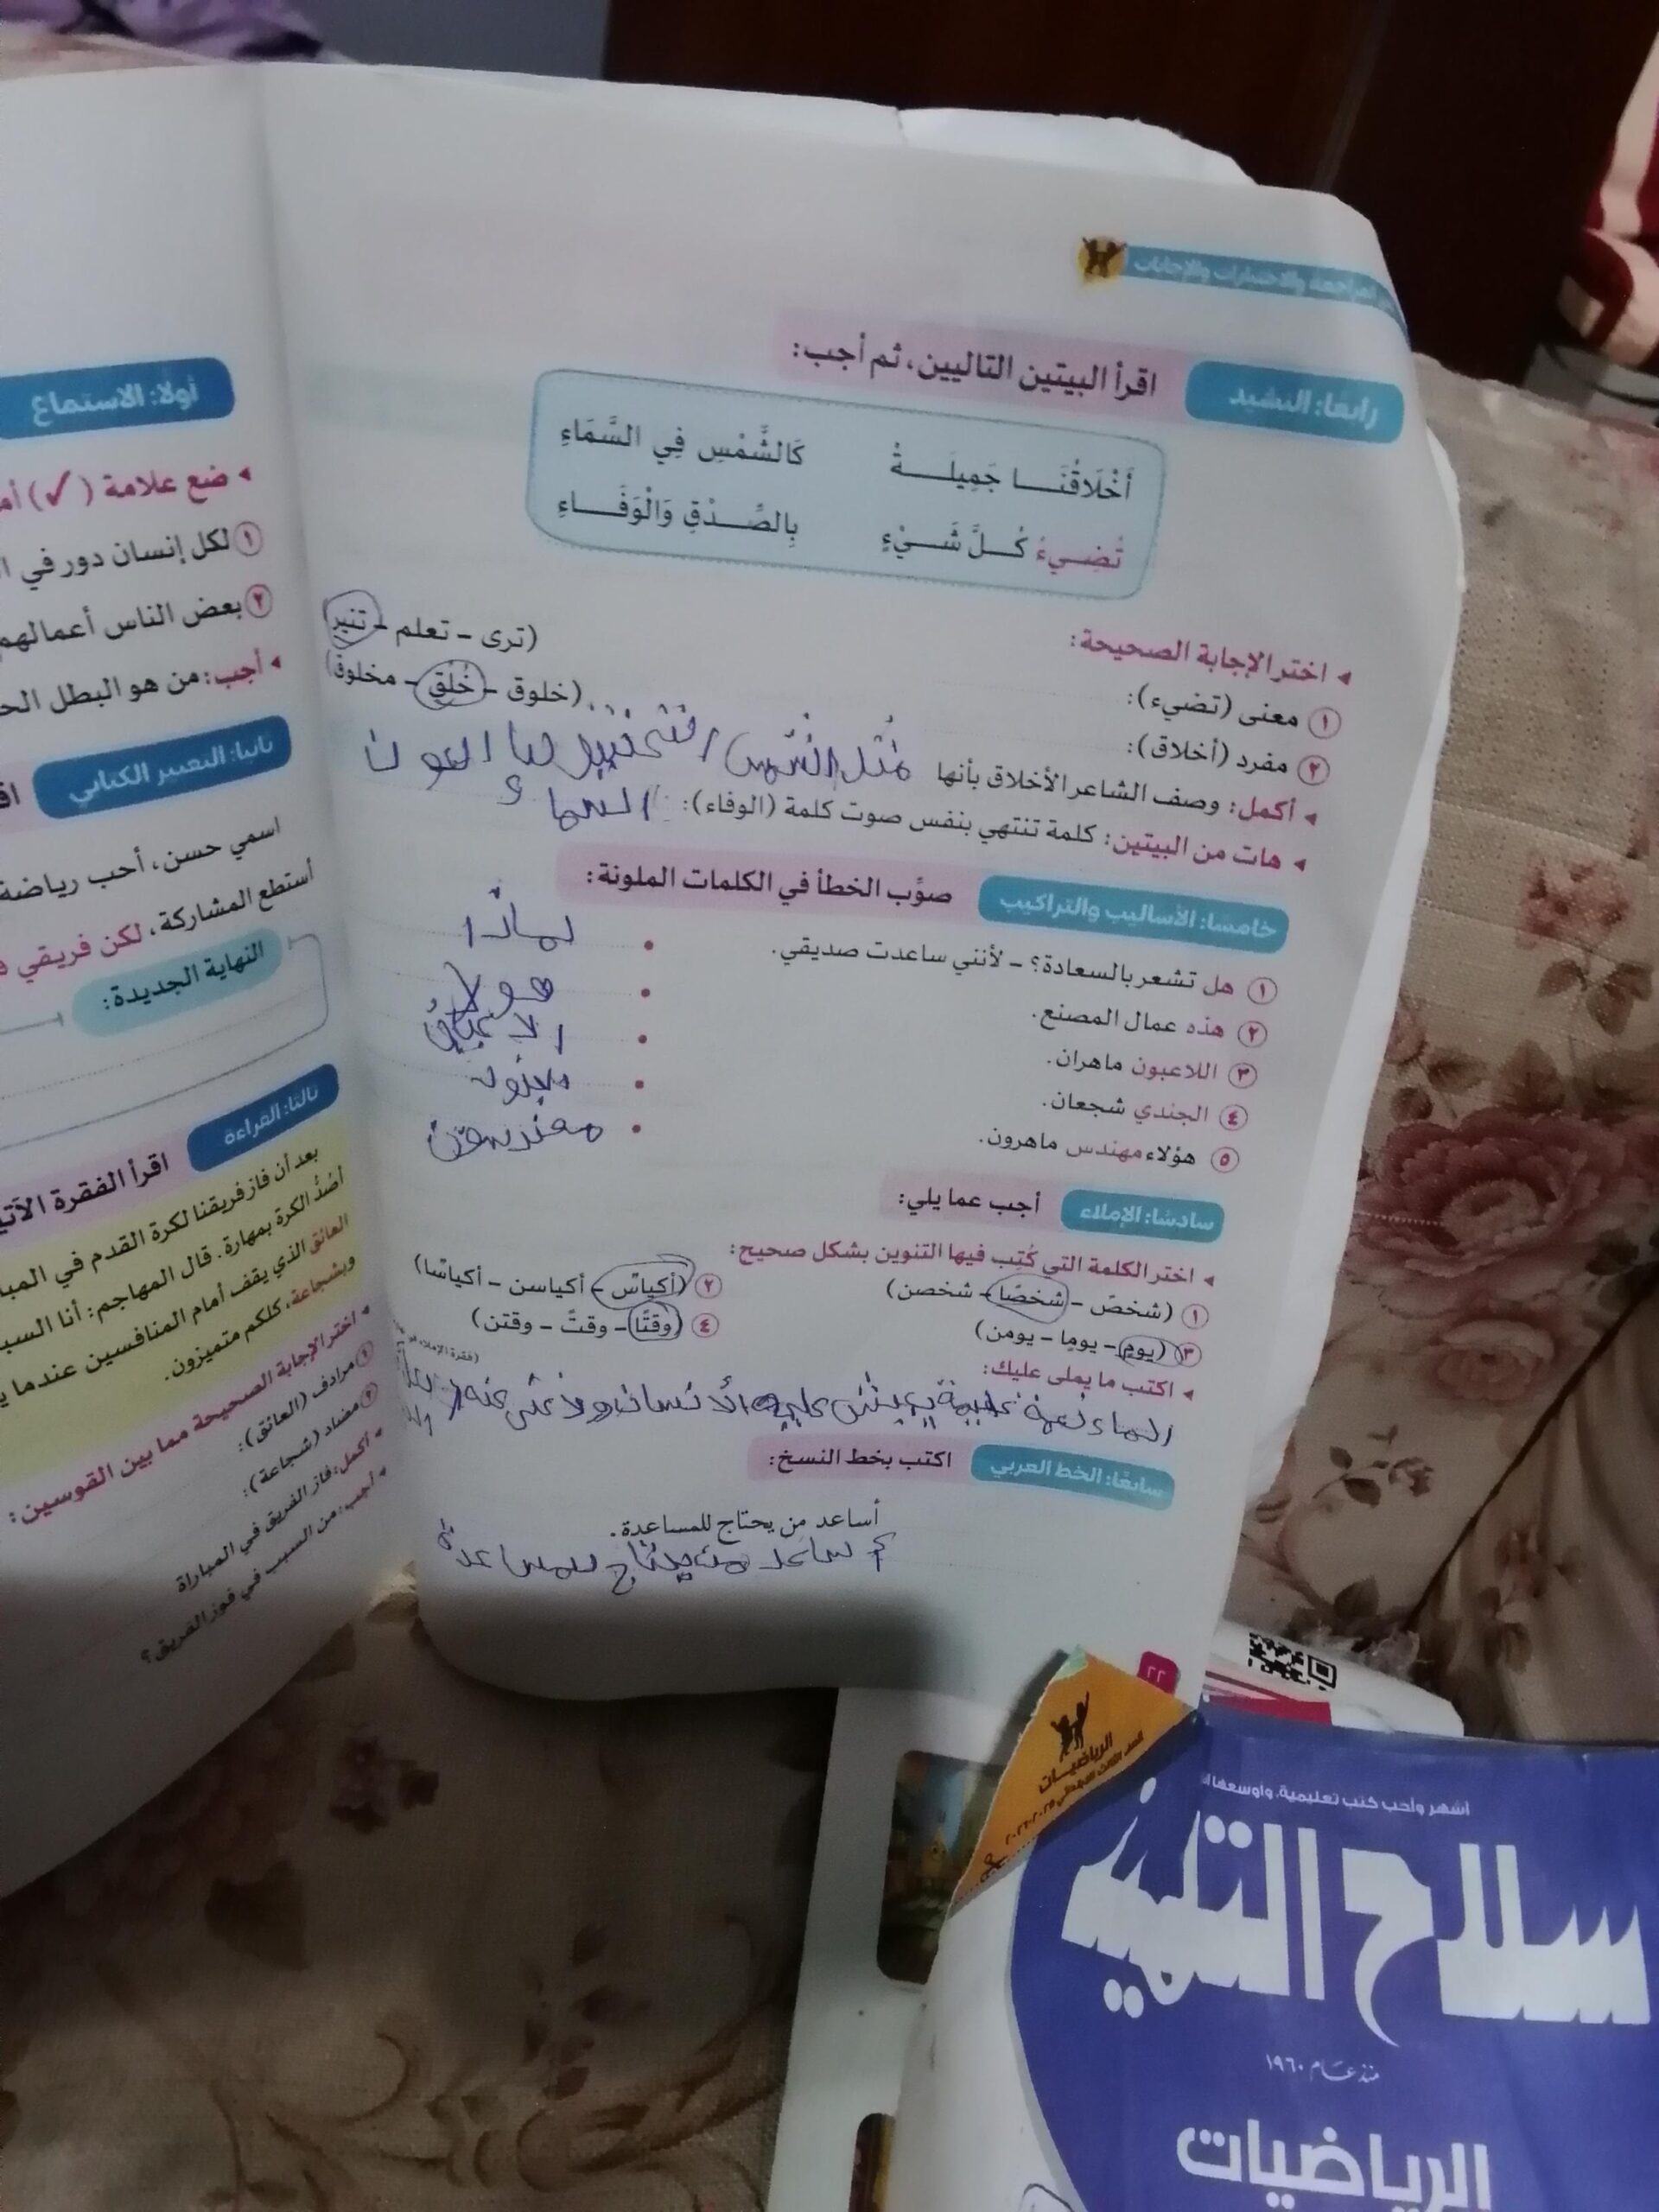 المراجعة والاختبارات والإجابات
رابعًا: النشيد
اقرأ البيتين التاليين، ثم أجب:
أَخْلَاقُنَـــا جَمِيلَـــــةٌ كَالشَّمْسِ فِي السَّمَاءِ
تُضِـــيءُ كُـــلَّ شَـــيْءٍ بِالصِّـــدْقِ وَالْوَفَـــاءِ
◂ اختر الإجابة الصحيحة:
١ معنى (تضيء): (ترى - تعلم - تنير)
٢ مفرد (أخلاق): (خلوق - خُلُق - مخلوق)
◂ أكمل: وصف الشاعر الأخلاق بأنها مثل الشمس التي تنير لنا الكون
◂ هات من البيتين: كلمة تنتهي بنفس صوت كلمة (الوفاء): السماء
خامسًا: الأساليب والتراكيب
صوِّب الخطأ في الكلمات الملونة:
١ هل تشعر بالسعادة؟ - لأنني ساعدت صديقي. لماذا
٢ هذه عمال المصنع.
٣ اللاعبون ماهران.
٤ الجندي شجعان.
٥ هؤلاء مهندس ماهرون.
سادسًا: الإملاء
أجب عما يلي:
◂ اختر الكلمة التي كُتِب فيها التنوين بشكل صحيح:
١ (شخصٌ - شخصًا - شخصن) ٢ (أكياسٌ - أكياسن - أكياسًا)
٣ (يومٍ - يومِا - يومن) ٤ (وقتًا - وقتً - وقتن)
◂ اكتب ما يملى عليك:
سابعًا: الخط العربي
اكتب بخط النسخ:
أساعد من يحتاج للمساعدة.
أساعد من يحتاج للمساعدة
٢٢
أولًا: الاستماع
◂ ضع علامة (✓)
١ لكل إنسان دور في
٢ بعض الناس أعمالهم
◂ أجب: من هو البطل
ثانيًا: التعبير الكتابي
اسمي حسن، أحب رياضة
أستطع المشاركة، لكن فريقي
النهاية الجديدة:
ثالثًا: القراءة
اقرأ الفقرة
بعد أن فاز فريقنا لكرة القدم في
أصُدُّ الكرة بمهارة. قال المهاجم: أنا
العائق الذي يقف أمام المنافسين عندما
وبشجاعة، كلكم متميزون.
◂ اختر الإجابة الصحيحة مما بين القوسين:
١ مرادف (العائق):
٢ مضاد (شجاعة):
◂ أكمل: فاز الفريق في المباراة
◂ أجب: من السبب في فوز الفريق؟
الرياضيات
أشهر وأحب كتب تعليمية، وأوسعها
سلاح التلميذ
منذ عام ١٩٦٠
الرياضيات